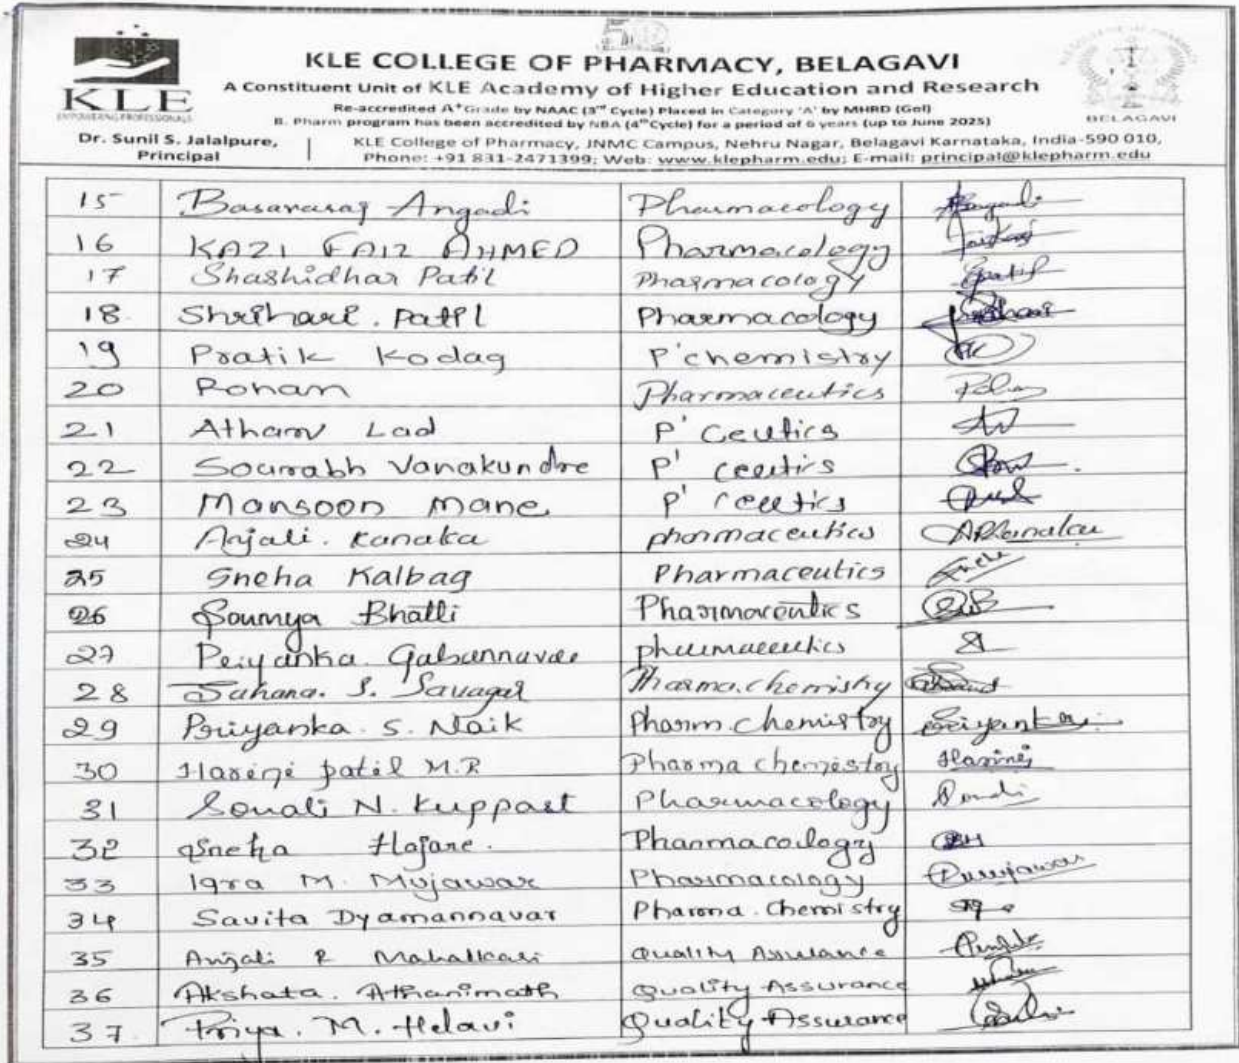 50
KLE
EMPOWERING PROFESSIONALS
KLE COLLEGE OF PHARMACY, BELAGAVI
A Constituent Unit of KLE Academy of Higher Education and Research
Re-accredited A+ Grade by NAAC (3rd Cycle) Placed in Category 'A' by MHRD (GoI)
B. Pharm program has been accredited by NBA (4th Cycle) for a period of 6 years (up to June 2025)
BELAGAVI
Dr. Sunil S. Jalalpure,
Principal
KLE College of Pharmacy, JNMC Campus, Nehru Nagar, Belagavi Karnataka, India-590 010,
Phone: +91 831-2471399; Web: www.klepharm.edu; E-mail: principal@klepharm.edu
15 Basavaraj Angadi Pharmacology
16 KAZI FAIZ AHMED Pharmacology
17 Shashidhar Patil Pharmacology Spatil
18. Shrihari. Patil Pharmacology
19 Pratik Kodag P'chemistry
20 Rohan Pharmaceutics
21 Atharv Lad P' Ceutics
22 Sourabh Vanakundre P' ceutics
23 Mansoon Mane P' ceutics
24 Anjali. Kanaka pharmaceutics
25 Sneha Kalbag Pharmaceutics
26 Soumya Bhatli Pharmaceutics
27 Priyanka. Gabannavar pharmaceutics
28 Sahana. S. Savagar Pharma.chemistry
29 Priyanka. S. Naik Pharm.chemistry Priyanka
30 Harini patil M.R Pharma chemistry Harini
31 Sonali N. Kuppast Pharmacology
32 Sneha Hajare. Pharmacology
33 Iqra M. Mujawar Pharmacology
34 Savita Dyamannavar Pharma. Chemistry
35 Anjali R Mahalkari Quality Assurance
36 Akshata. Athanimath Quality Assurance
37. Priya. M. Helavi Quality Assurance